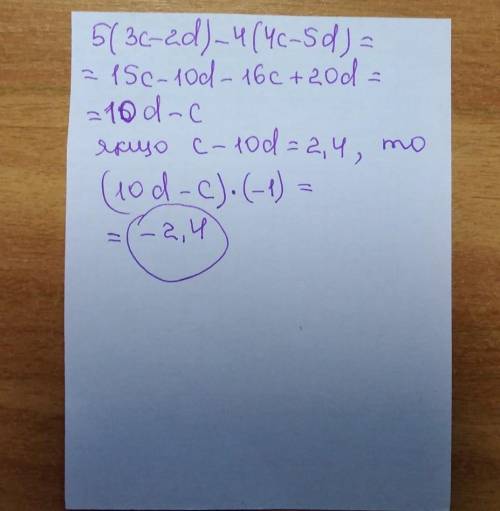 5(3c-2d)-4(4c-5d)=
= 15c-10d-16c+20d=
=10d-c
якщо c-10d=2,4, то
(10d-c)•(-1)=
= -2,4